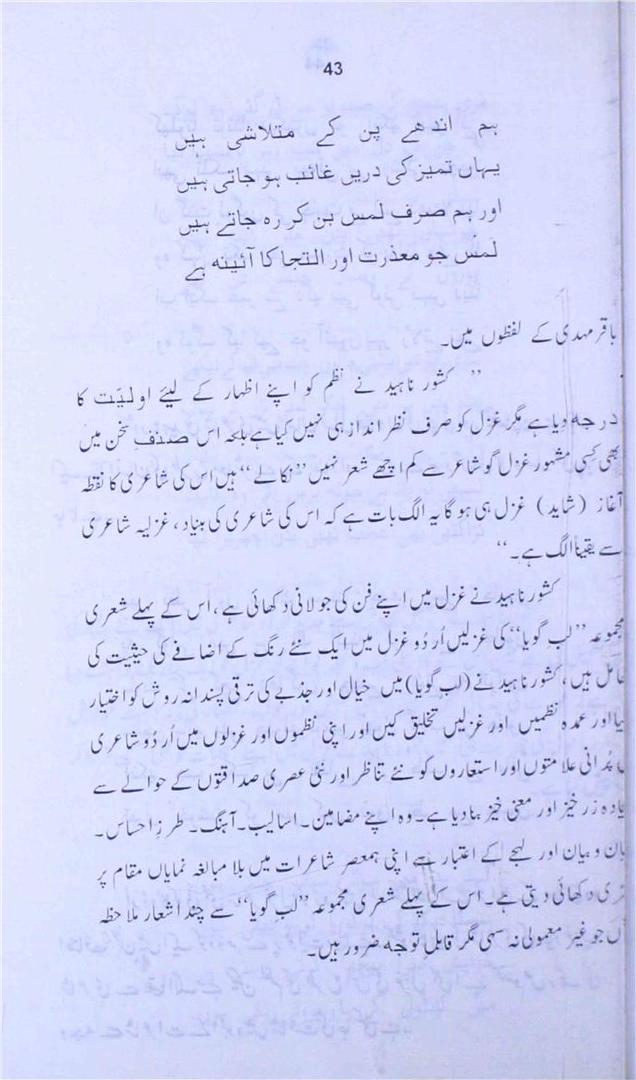 43
ہم اندھے پن کے متلاشی ہیں
یہاں تمیز کی دریں غائب ہو جاتی ہیں
اور ہم صرف لمس بن کر رہ جاتے ہیں
لمس جو معذرت اور التجا کا آئینہ ہے
باقر مہدی کے لفظوں میں۔
” کشور ناہید نے نظم کو اپنے اظہار کے لیئے اولیّت کا
درجہ دیا ہے مگر غزل کو صرف نظر انداز ہی نہیں کیا ہے بلکہ اس صنفِ سخن میں
بھی کسی مشہور غزل گو شاعر سے کم اچھے شعر نہیں ”نکالے“ ہیں اس کی شاعری کا نقطہ
آغاز (شاید) غزل ہی ہو گا یہ الگ بات ہے کہ اس کی شاعری کی بنیاد، غزلیہ شاعری
سے یقیناً الگ ہے۔“
کشور ناہید نے غزل میں اپنے فن کی جولانی دکھائی ہے، اس کے پہلے شعری
مجموعہ ”لب گویا“ کی غزلیں اُردو غزل میں ایک نئے رنگ کے اضافے کی حیثیت کی
حامل ہیں، کشور ناہید نے (لب گویا) میں خیال اور جذبے کی ترقی پسندانہ روش کو اختیار
کیا اور عمدہ نظمیں اور غزلیں تخلیق کیں اور اپنی نظموں اور غزلوں میں اُردو شاعری
پُرانی علامتوں اور استعاروں کو نئے تناظر اور نئی عصری صداقتوں کے حوالے سے
زیادہ زرخیز اور معنی خیز بنادیا ہے۔ وہ اپنے مضامین۔ اسالیب۔ آہنگ۔ طرزِ احساس۔
زبان و بیان اور لہجے کے اعتبار سے اپنی ہمعصر شاعرات میں بلا مبالغہ نمایاں مقام پر
دکھائی دیتی ہے۔ اس کے پہلے شعری مجموعہ ”لبِ گویا“ سے چند اشعار ملاحظہ
جو غیر معمولی نہ سہی مگر قابل توجہ ضرور ہیں۔